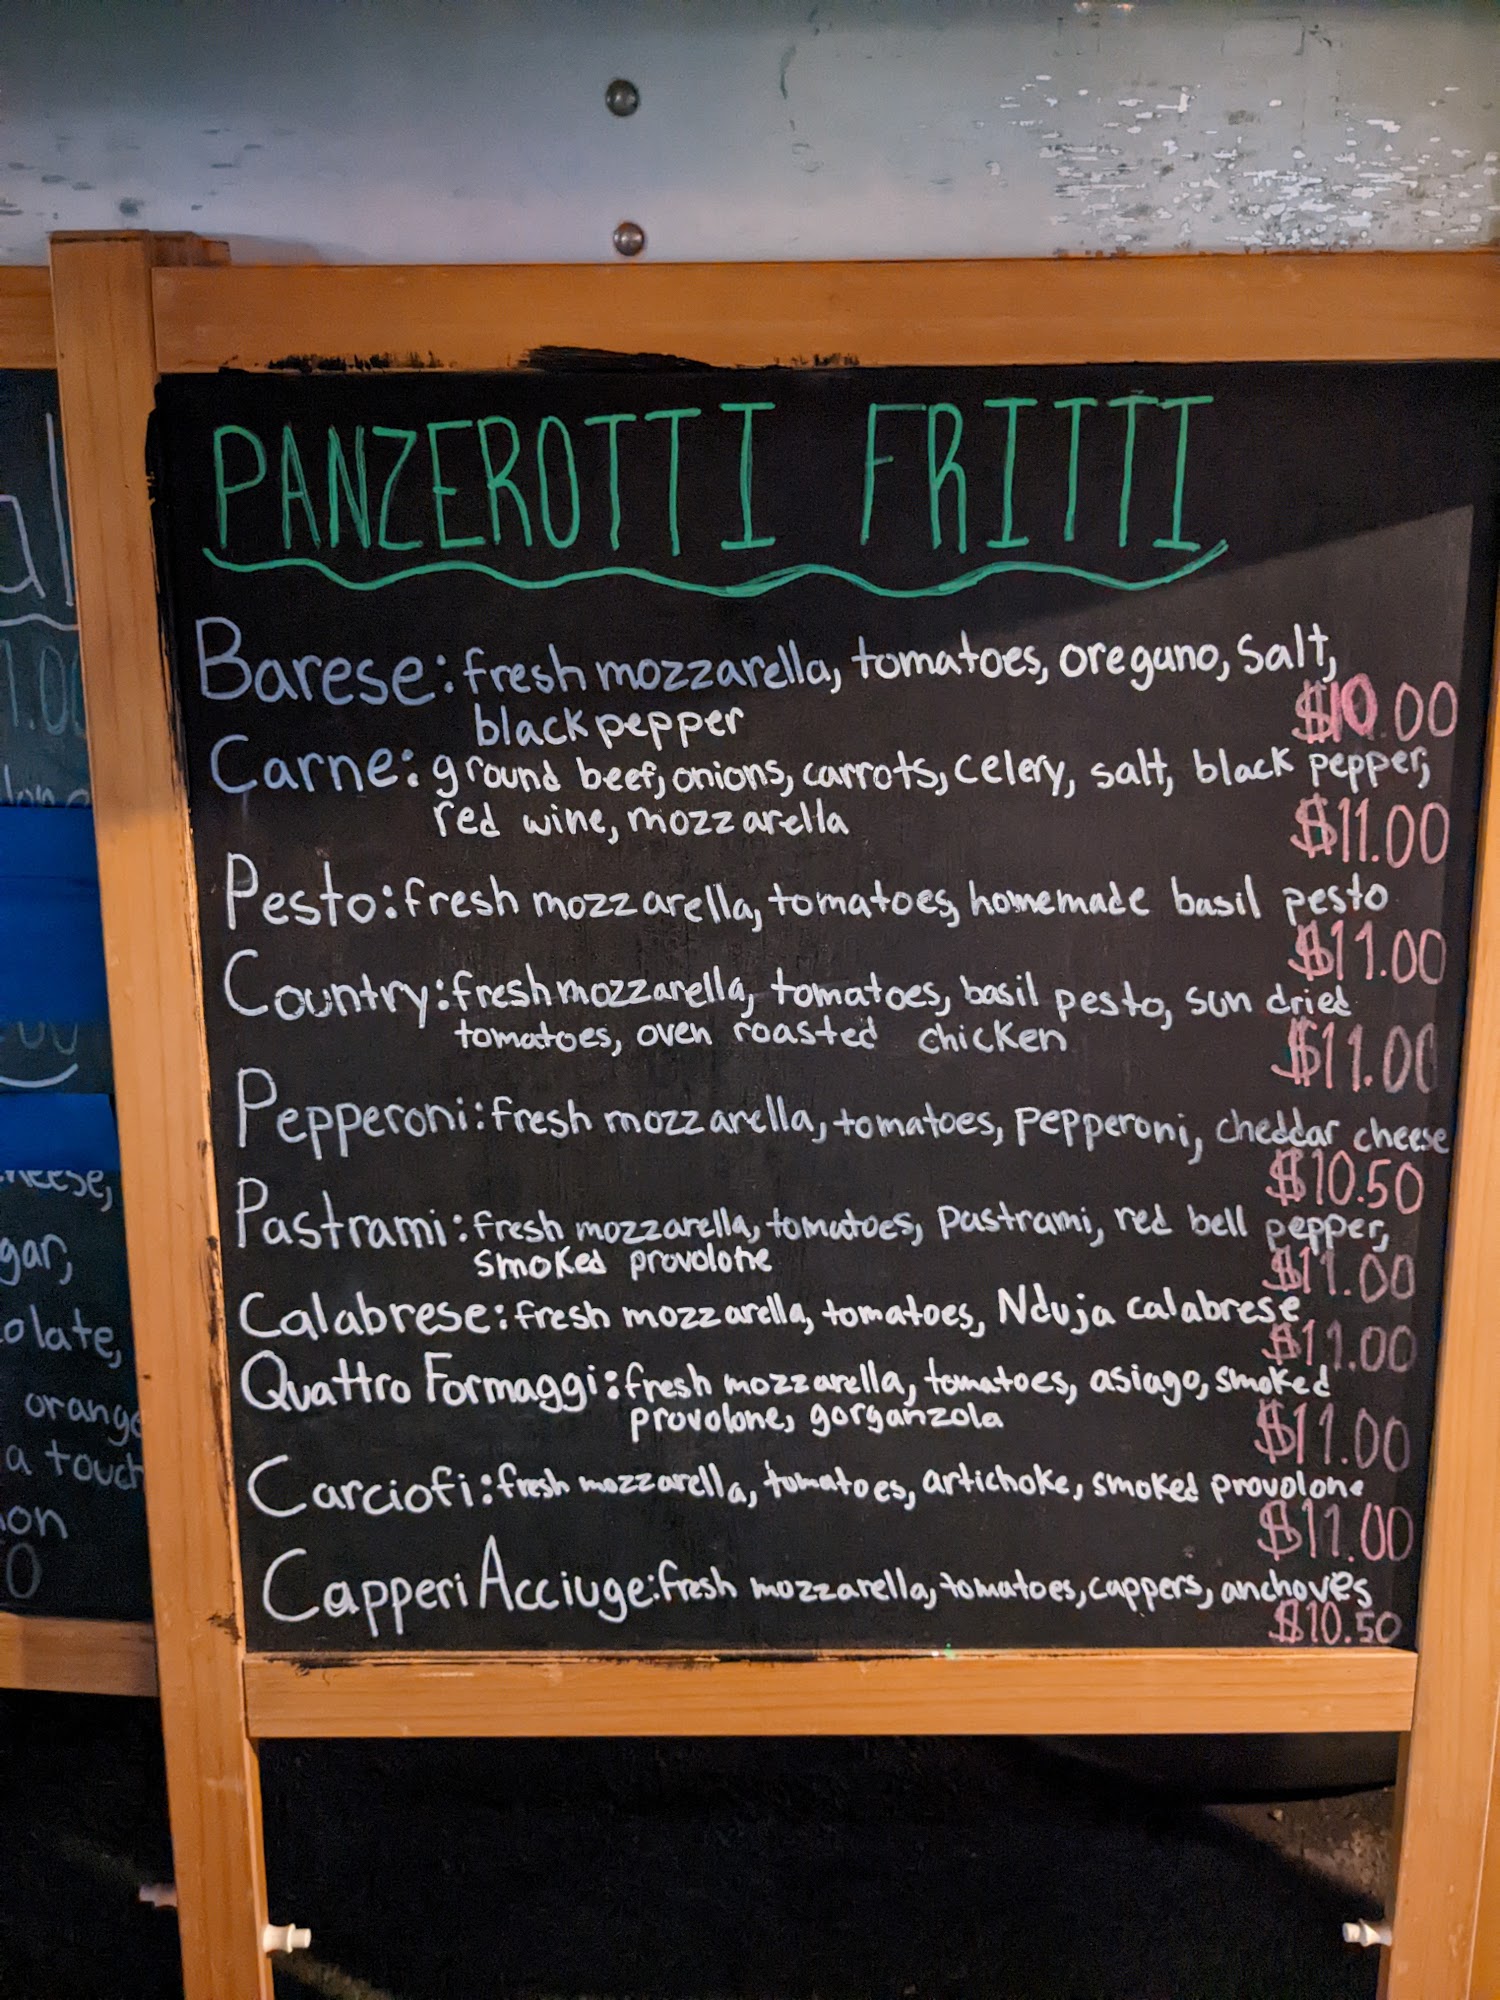 PANZEROTTI FRITTI
Barese: fresh mozzarella, tomatoes, oregano, salt,
black pepper
$10.00
Carne: ground beef, onions, carrots, celery, salt, black pepper,
red wine, mozzarella
$11.00
Pesto: fresh mozzarella, tomatoes, homemade basil pesto
$11.00
Country: fresh mozzarella, tomatoes, basil pesto, sun dried
tomatoes, oven roasted chicken
$11.00
Pepperoni: fresh mozzarella, tomatoes, pepperoni, cheddar cheese
$10.50
Pastrami: fresh mozzarella, tomatoes, pastrami, red bell pepper,
smoked provolone
$11.00
Calabrese: fresh mozzarella, tomatoes, Nduja calabrese
$11.00
Quattro Formaggi: fresh mozzarella, tomatoes, asiago, smoked
provolone, gorganzola
$11.00
Carciofi: fresh mozzarella, tomatoes, artichoke, smoked provolone
$11.00
Capperi Acciuge: fresh mozzarella, tomatoes, cappers, anchoves
$10.50
orange
a touch